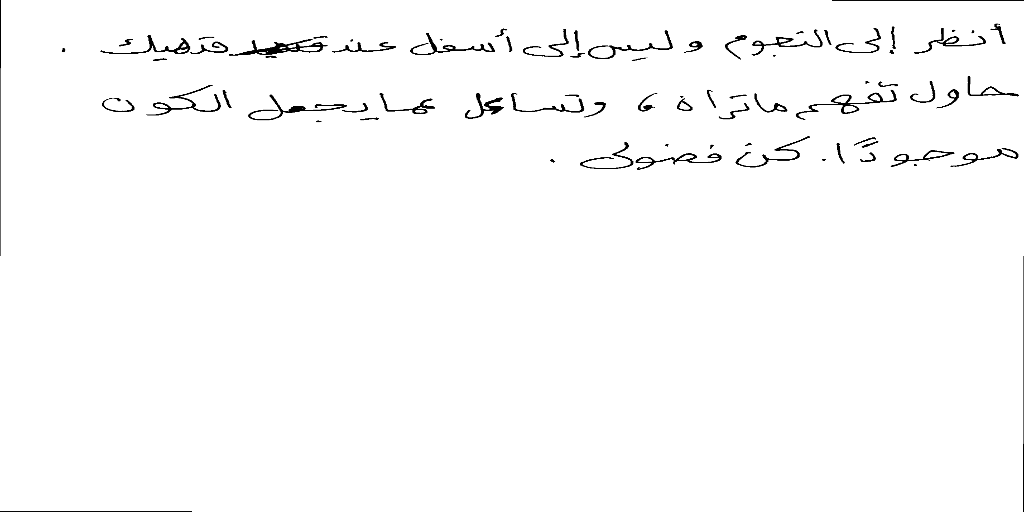 انظر إلى النجوم وليس إلى أسفل عند قدميك .
حاول تفهم ماتراه ، وتساءل عما يجعل الكون
موجودًا. كن فضولى .